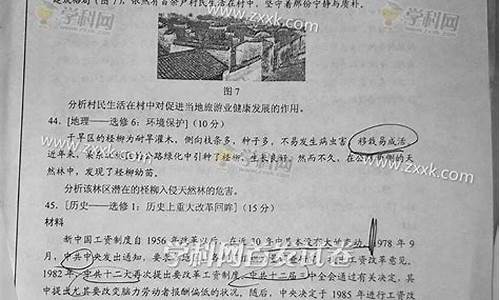 建成格局（图7），依然有百余户村民生活在村中，坚守着那份宁静与质朴。
学科网
www.zxxk.com
图7
分析村民生活在村中对促进当地旅游业健康发展的作用。
44. [地理——选修6：环境保护]（10分）
干旱区的柽柳为耐旱灌木，侧向枝条多，种子多，不易发生病虫害，移栽易成活。
近年来，某
公路绿化中引种了柽柳，生长良好。然而不久，在公路
侧的天
然林中，发现了柽柳幼苗。
分析该林区潜在的柽柳入侵天然林的危害。
45. [历史——选修1：历史上重大改革回眸]（15分）
材料
新中国工资制度自1956年改革以后，在近30年中基本没有大的变动。1978年9
月，中共中央发出通知，要
工资改革意见。
1982年，中共十二大再次提出要改革工资制度，中共十二届三中全会通过有关决定，其
中提出尤其要改变脑力劳动者报酬偏低的状况。随后，中央决定于1985年进行工资改
学科网首发试卷